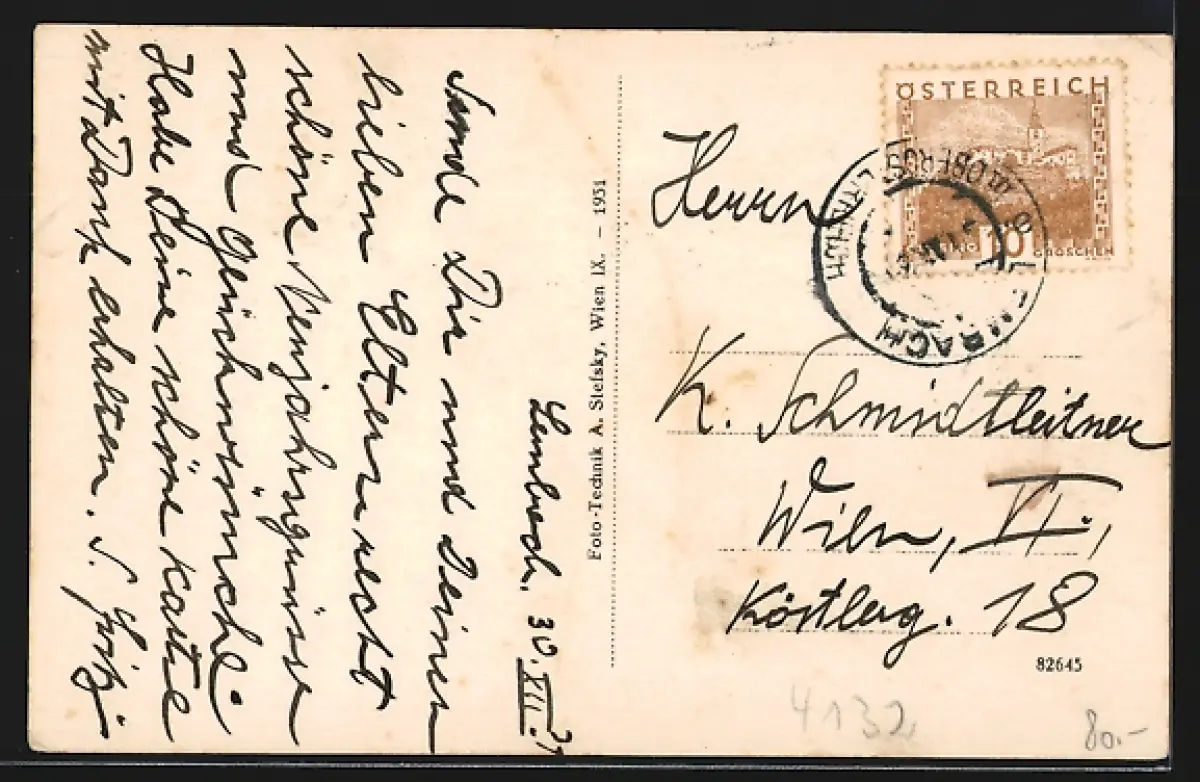 Lembach, 30. XII. 31
Sende Dir und Deinen
lieben Eltern recht
schöne Neujahrsgrüsse
und Glückwünsche.
Habe Deine schöne Karte
mit Dank erhalten. S. Fritz
Foto-Technik A. Stefsky, Wien IX. – 1931
ÖSTERREICH
10
GROSCHEN
LEMBACH
Herrn
K. Schmidtleitner
Wien, VI.,
Köstlerg. 18
82645
4132
80.-